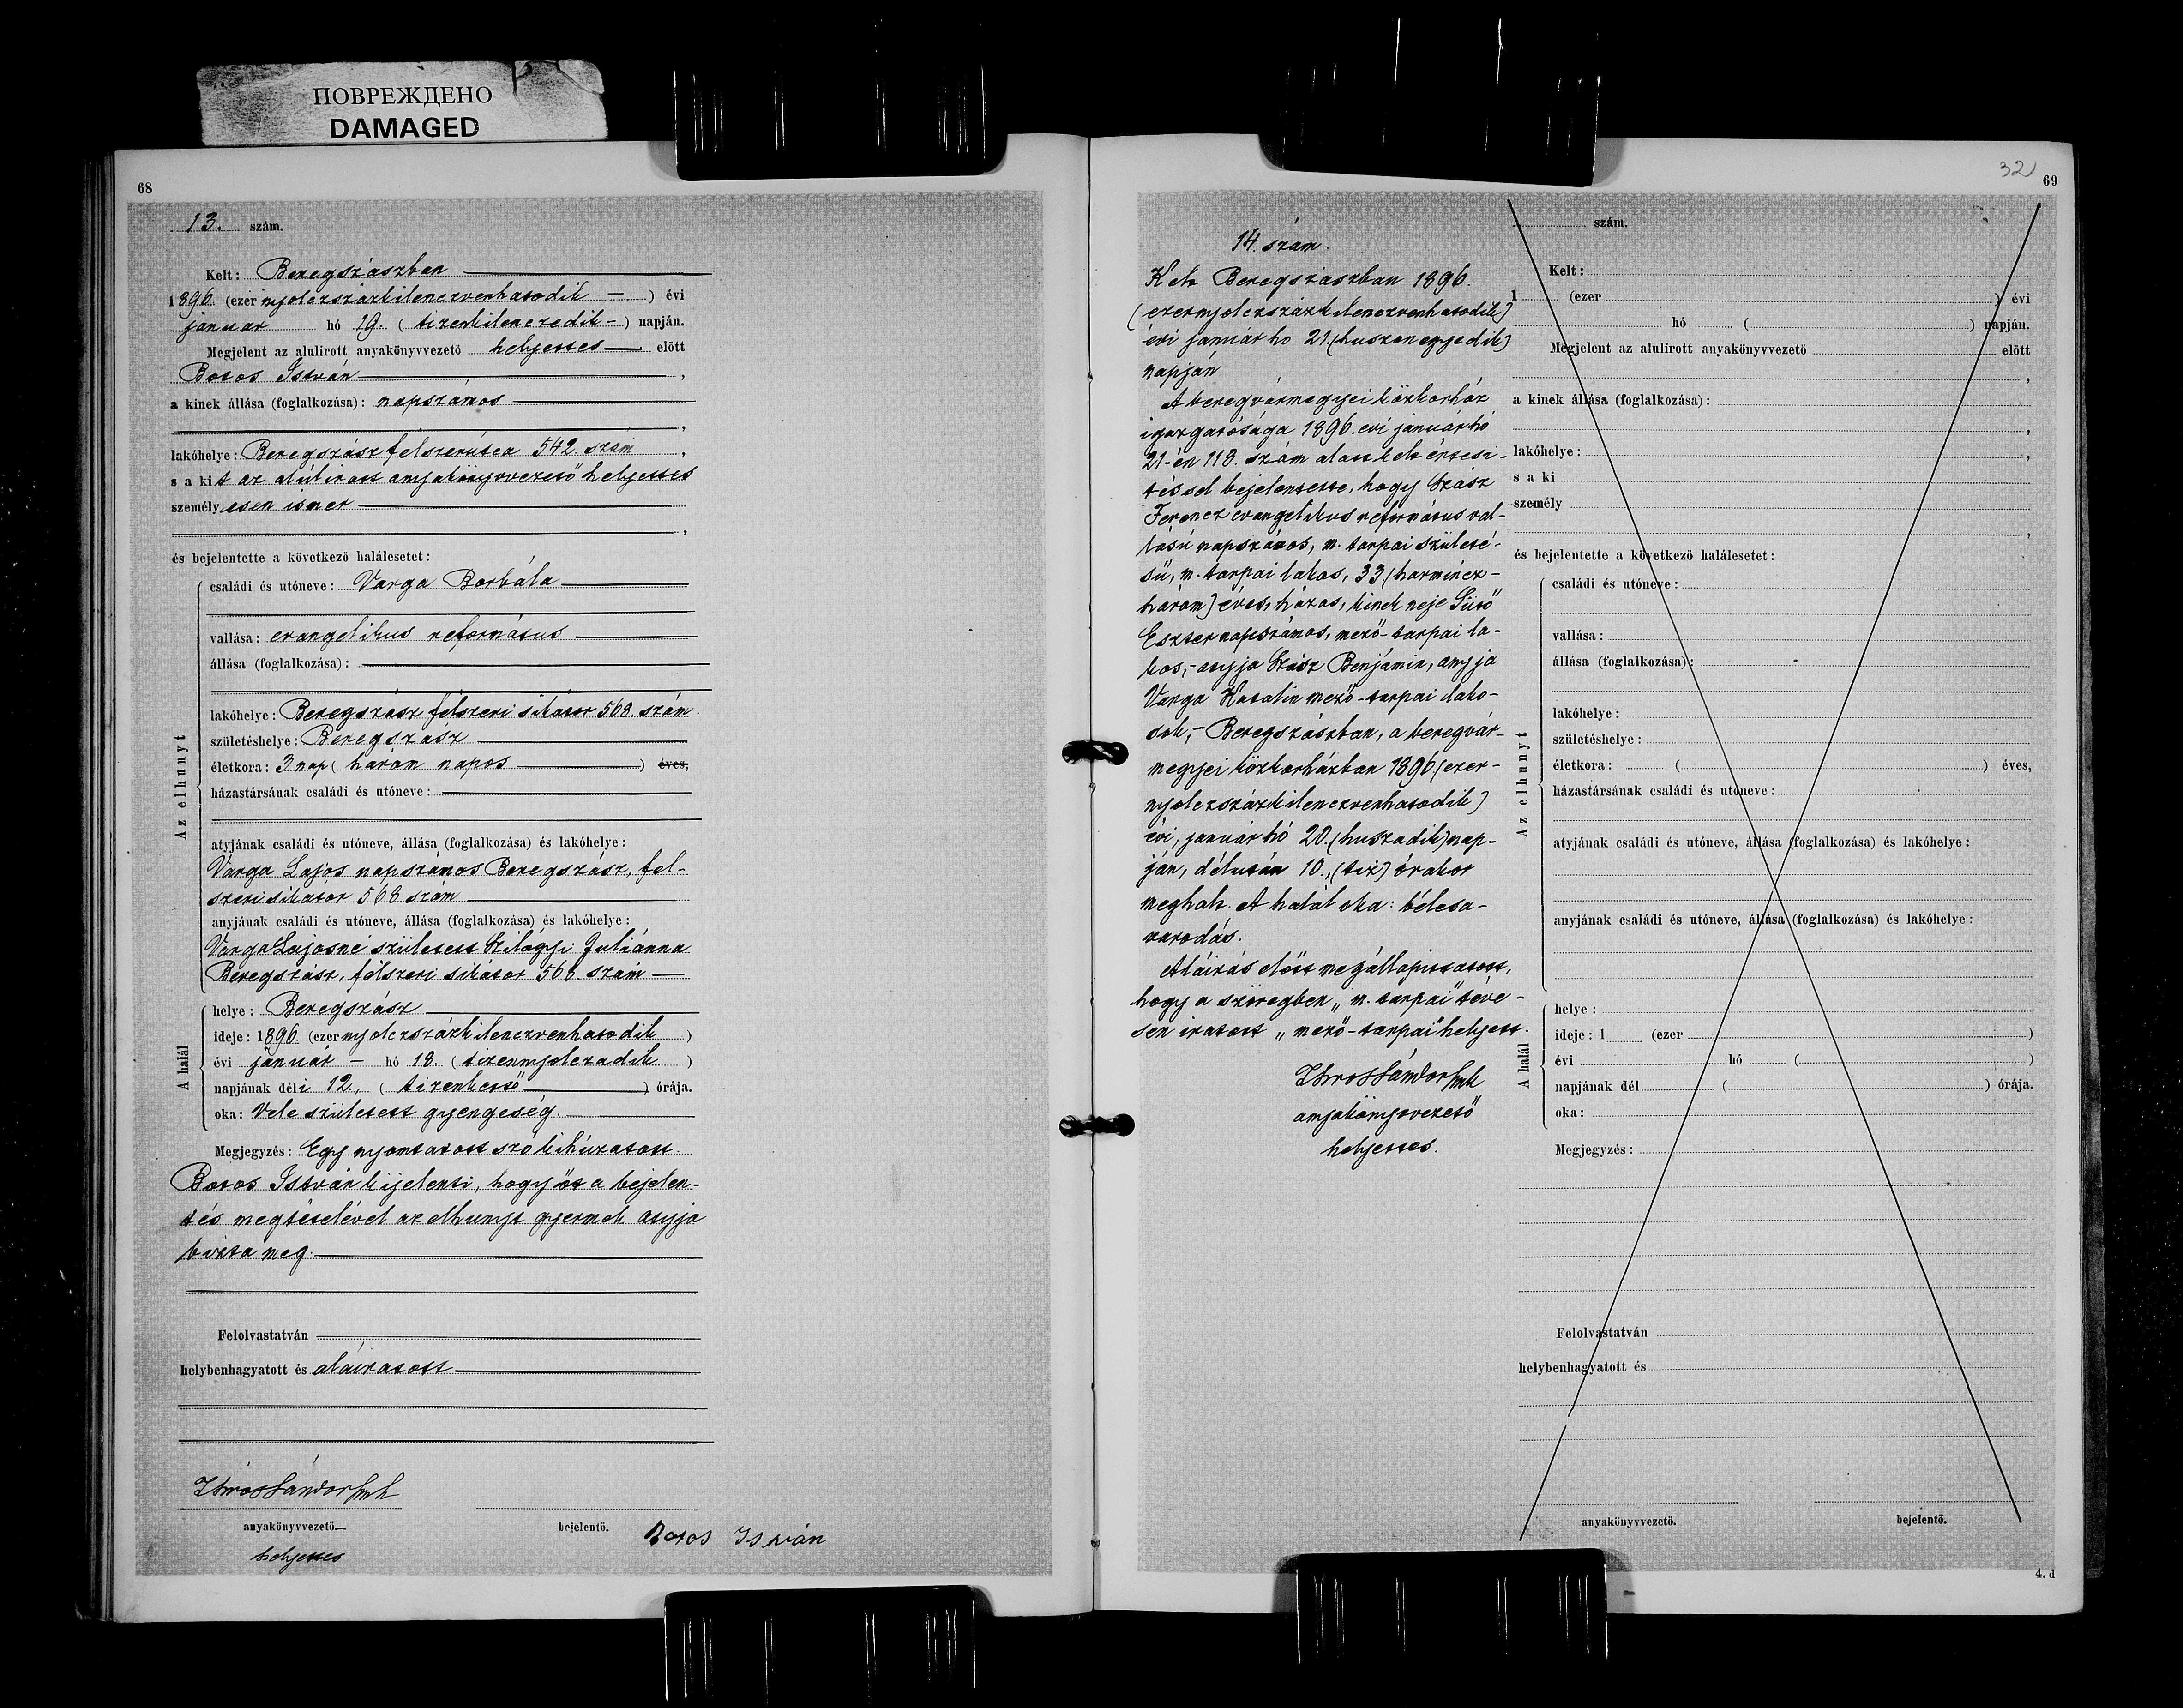 ПОВРЕЖДЕНО
DAMAGED
68
13. szám.
Kelt: Beregszászban
1896. (ezer nyolczszázkilenczvenhatodik —) évi
január hó 19. (tizenkilenczedik —) napján.
Megjelent az alulirott anyakönyvvezető helyettes előtt
Botos István,
a kinek állása (foglalkozása): napszámos
,
lakóhelye: Beregszász felszerutca 542. szám,
s a kit az alúlirott anyakönyvvezető helyettes
személyesen ismer
,
és bejelentette a következő halálesetet:
Az elhunyt
családi és utóneve: Varga Borbála
vallása: evangelikus református
állása (foglalkozása):
lakóhelye: Beregszász felszeri sikátor 568. szám.
születéshelye: Beregszász
életkora: 3 nap (három napos) éves,
házastársának családi és utóneve:
atyjának családi és utóneve, állása (foglalkozása) és lakóhelye:
Varga Lajos napszámos Beregszász, fel-
szeri sikátor 568 szám
anyjának családi és utóneve, állása (foglalkozása) és lakóhelye:
Varga Lajosné született Szilágyi Juliánna
Beregszász, felszeri sikátor 568. szám —
A halál
helye: Beregszász
ideje: 1896. (ezer nyolczszázkilenczvenhatodik)
évi január — hó 18. (tizennyolczadik)
napjának déli 12., (tizenkettő) órája.
oka: Vele született gyengeség.
Megjegyzés: Egy nyomtatott szó kihúzatott.
Botos István kijelenti, hogy őt a bejelen-
tés megtételével az elhunyt gyermek atyja
bízta meg.
Felolvastatván
helybenhagyatott és aláiratott
Sándor
anyakönyvvezető
helyettes
bejelentő.
Botos István
32
69
14. szám.
Kelt Beregszászban 1896.
(ezernyolczszázkilenczvenhatodik)
évi január hó 21. (huszonegyedik)
napján
A beregvármegyei közkorház
igazgatósága 1896. évi január hó
21-én 118. szám alatt kelt értesi-
téssel bejelentette, hogy Szász
Ferencz evangelikus református val-
lású napszámos, m. tarpai születé-
sü, m. tarpai lakos, 33 (harmincz-
három) éves, házas, kinek neje Sütő
Eszter napszámos, mező-tarpai la-
kos, - atyja Szász Benjámin, anyja
Varga Katalin mező-tarpai lako-
sok, - Beregszászban, a beregvár-
megyei közkorházban 1896 (ezer-
nyolczszázkilenczvenhatodik)
évi, január hó 20. (huszadik) nap-
ján, délután 10., (tiz) órakor
meghalt. A halál oka: bélcsa-
varodás.
Aláírás előtt megállapittatott,
hogy a szövegben „m. tarpai" téve-
sen iratott „mező-tarpai" helyett.
Sándor
anyakönyvvezető
helyettes.
szám.
Kelt:
1 (ezer ) évi
hó ( ) napján.
Megjelent az alulirott anyakönyvvezető előtt
,
a kinek állása (foglalkozása):
,
lakóhelye: ,
s a ki
személy
,
és bejelentette a következő halálesetet:
Az elhunyt
családi és utóneve:
vallása:
állása (foglalkozása):
lakóhelye:
születéshelye:
életkora: ( ) éves,
házastársának családi és utóneve:
atyjának családi és utóneve, állása (foglalkozása) és lakóhelye:
anyjának családi és utóneve, állása (foglalkozása) és lakóhelye:
A halál
helye:
ideje: 1 (ezer )
évi hó ( )
napjának dél ( ) órája.
oka:
Megjegyzés:
Felolvastatván
helybenhagyatott és
anyakönyvvezető.
bejelentő.
4. d